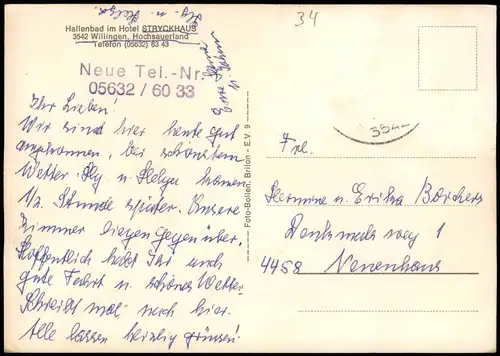 Hallenbad im Hotel STRYCKHAUS
3542 Willingen, Hochsauerland
Telefon (05632) 63 43
Neue Tel.-Nr.
05632 / 60 33
34
Ihr Lieben!
Wir sind hier heute gut
angekommen, bei schönstem
Wetter. Hg. u. Helga kamen
1/2 Stunde später. Unsere
Zimmer liegen gegenüber.
Hoffentlich habt Ihr auch
gute Fahrt u. schönes Wetter.
Schreibt mal nach hier.
Alle lassen herzlich grüssen!
Hg. u. Helga
Foto-Bolten, Brilon - E.V. 9
354
Frl.
Hermine u. Erika Borchers
Denkmalsweg 1
4458 Neuenhaus